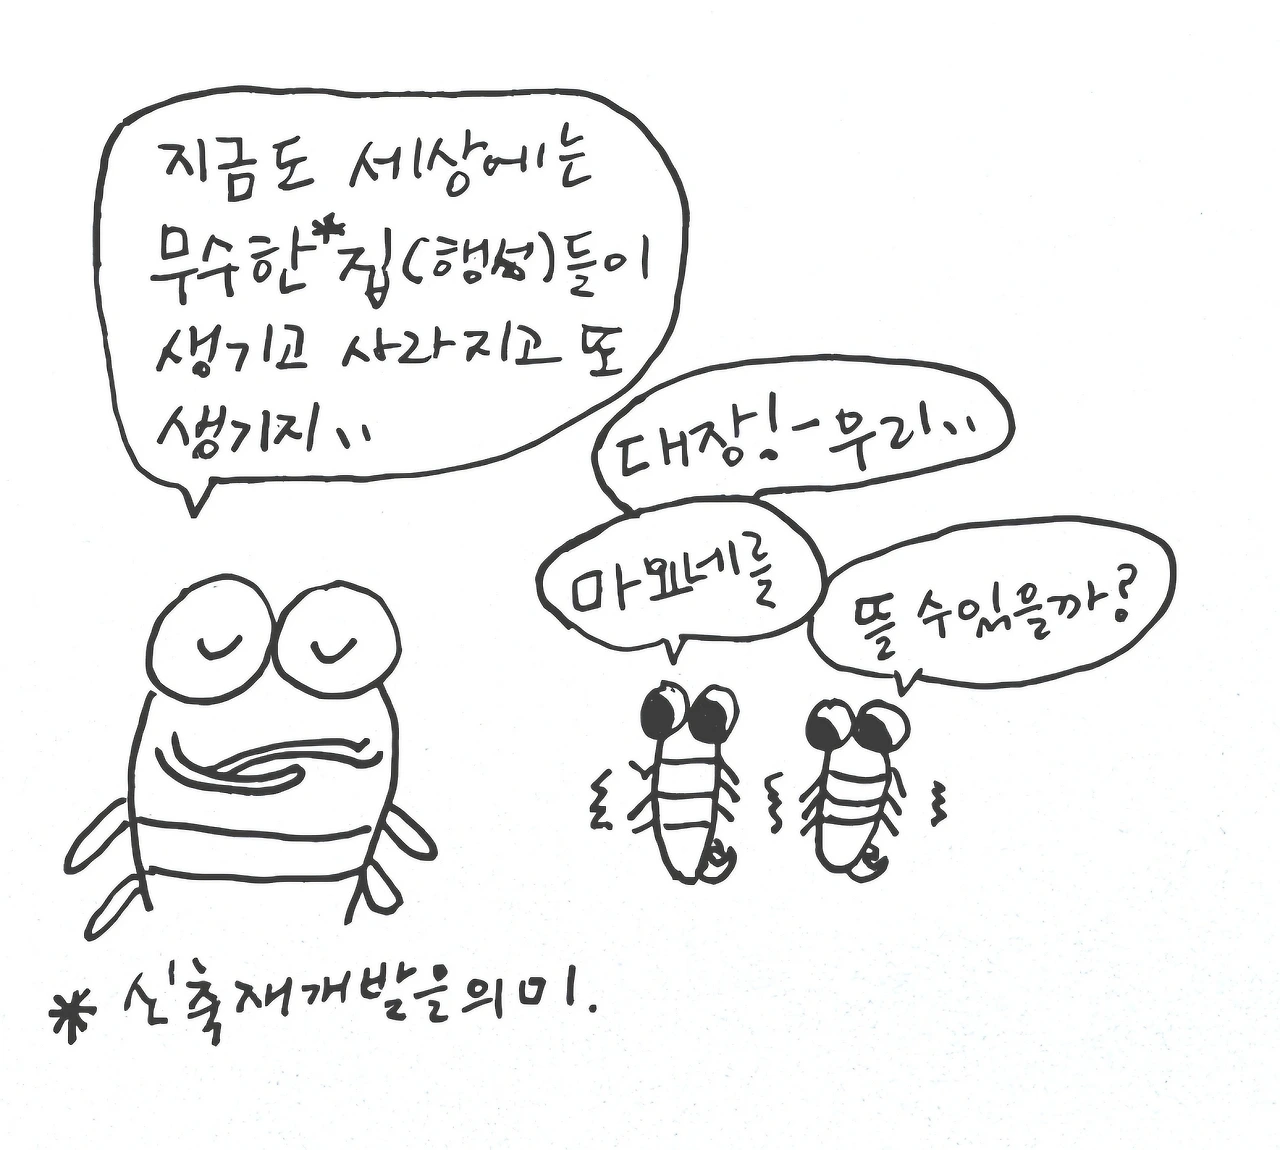 지금도 세상에는
무수한*집(행성)들이
생기고 사라지고 또
생기지..
대장!-우리..
마뫼네를
뜰 수있을까?
* 신축재개발을의미.